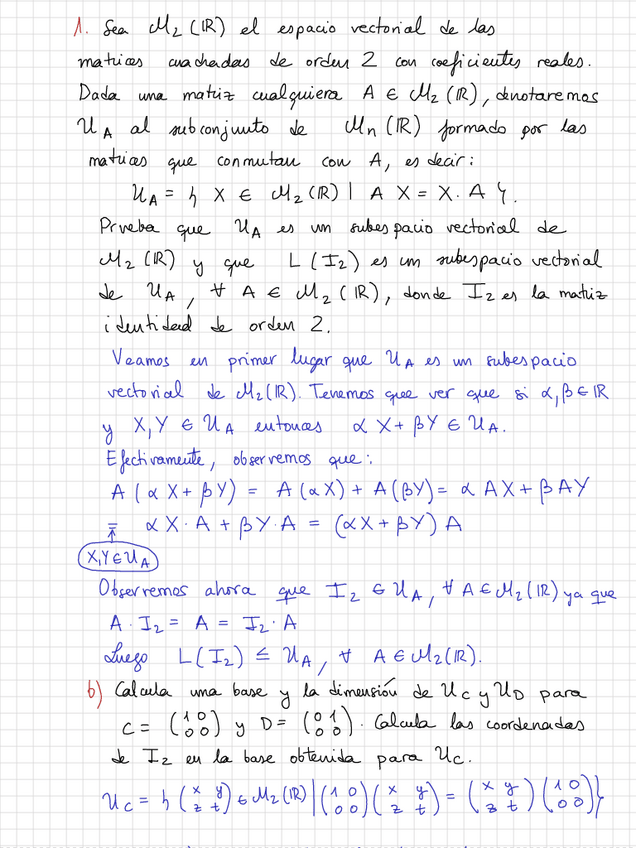 1. Sea M₂(ℝ) el espacio vectorial de las
matrices cuadradas de orden 2 con coeficientes reales.
Dada una matriz cualquiera A ∈ M₂(ℝ), denotaremos
U_A al subconjunto de M_n(ℝ) formado por las
matrices que conmutan con A, es decir:
U_A = { X ∈ M₂(ℝ) | A X = X · A }.
Prueba que U_A es un subespacio vectorial de
M₂(ℝ) y que L(I₂) es um subespacio vectorial
de U_A, ∀ A ∈ M₂(ℝ), donde I₂ es la matriz
identidad de orden 2.
Veamos en primer lugar que U_A es un subespacio
vectorial de M₂(ℝ). Tenemos que ver que si α, β ∈ ℝ
y X, Y ∈ U_A entonces α X + β Y ∈ U_A.
Efectivamente, observemos que:
A(α X + β Y) = A(α X) + A(β Y) = α A X + β A Y
= α X · A + β Y · A = (α X + β Y) A
X, Y ∈ U_A
Observemos ahora que I₂ ∈ U_A, ∀ A ∈ M₂(ℝ) ya que
A · I₂ = A = I₂ · A
Luego L(I₂) ≤ U_A, ∀ A ∈ M₂(ℝ).
b) Calcula una base y la dimensión de U_C y U_D para
C = (1 0 / 0 0) y D = (0 1 / 0 0). Calcula las coordenadas
de I₂ en la base obtenida para U_C.
U_C = { (x y / z t) ∈ M₂(ℝ) | (1 0 / 0 0) (x y / z t) = (x y / z t) (1 0 / 0 0) }